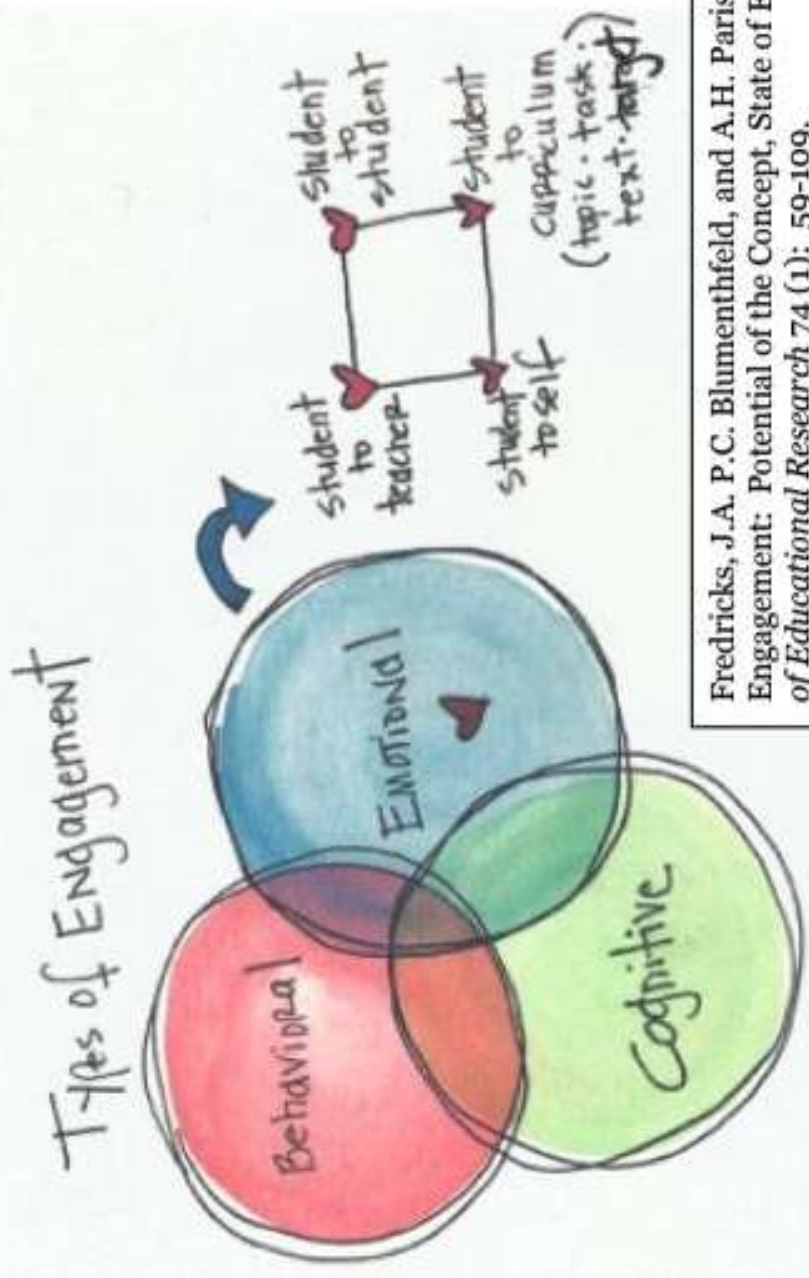 Types of Engagement
Behavioral
Emotional
Cognitive
student
to
teacher
student
to
student
student
to self
student
to
curriculum
(topic · task ·
text · target)
Fredricks, J.A. P.C. Blumenthfeld, and A.H. Paris
Engagement: Potential of the Concept, State of E
of Educational Research 74 (1): 59-109.